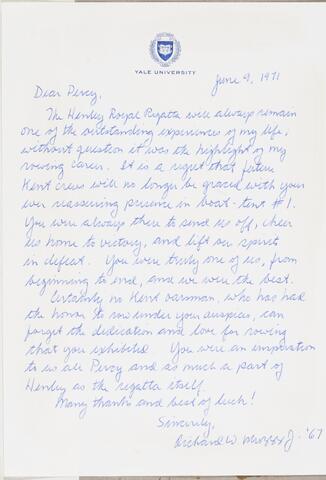 YALE UNIVERSITY
June 9, 1971
Dear Percy,
The Henley Royal Regatta will always remain
one of the outstanding experiences of my life;
without question it was the highlight of my
rowing career. It is a regret that future
Kent crews will no longer be graced with your
ever reassuring presence in boat-tent #1.
You were always there to send us off, cheer
us home to victory, and lift our spirits
in defeat. You were truly one of us, from
beginning to end, and we were the best.
Certainly no Kent oarsman, who has had
the honor to row under your auspices, can
forget the dedication and love for rowing
that you exhibited. You were an inspiration
to us all Percy and so much a part of
Henley as the regatta itself.
Many thanks and best of luck!
Sincerely,
Richard W Jr. '67